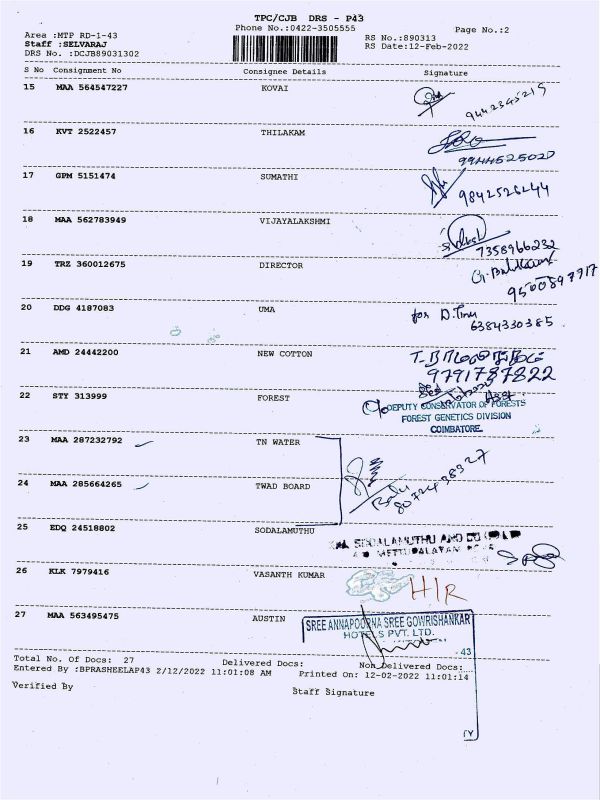 TPC/CJB DRS - P43
Phone No.:0422-3505555
Page No.:2
Area :MTP RD-1-43
RS No.:890313
Staff :SELVARAJ
RS Date:12-Feb-2022
DRS No. :DCJB89031302
S No Consignment No Consignee Details Signature
15 MAA 564547227 KOVAI
9442345215
16 KVT 2522457 THILAKAM
9944525020
17 GPM 5151474 SUMATHI
9842526244
18 MAA 562783949 VIJAYALAKSHMI
7358966232
19 TRZ 360012675 DIRECTOR
9500897917
20 DDG 4187083 UMA
for D.
6384330385
21 AMD 24442200 NEW COTTON
9791787822
22 STY 313999 FOREST
DEPUTY CONSERVATOR OF FORESTS
FOREST GENETICS DIVISION
COIMBATORE.
23 MAA 287232792 TN WATER
24 MAA 285664265 TWAD BOARD
25 EDQ 24518802 SODALAMUTHU
SODALAMUTHU AND CO
METTUPALAYAM
26 KLK 7979416 VASANTH KUMAR
H/R
27 MAA 563495475 AUSTIN
SREE ANNAPOORNA SREE GOWRISHANKAR
HOTELS PVT. LTD.
43
Total No. Of Docs: 27 Delivered Docs: Non Delivered Docs:
Entered By :BPRASHEELAP43 2/12/2022 11:01:08 AM Printed On: 12-02-2022 11:01:14
Verified By Staff Signature